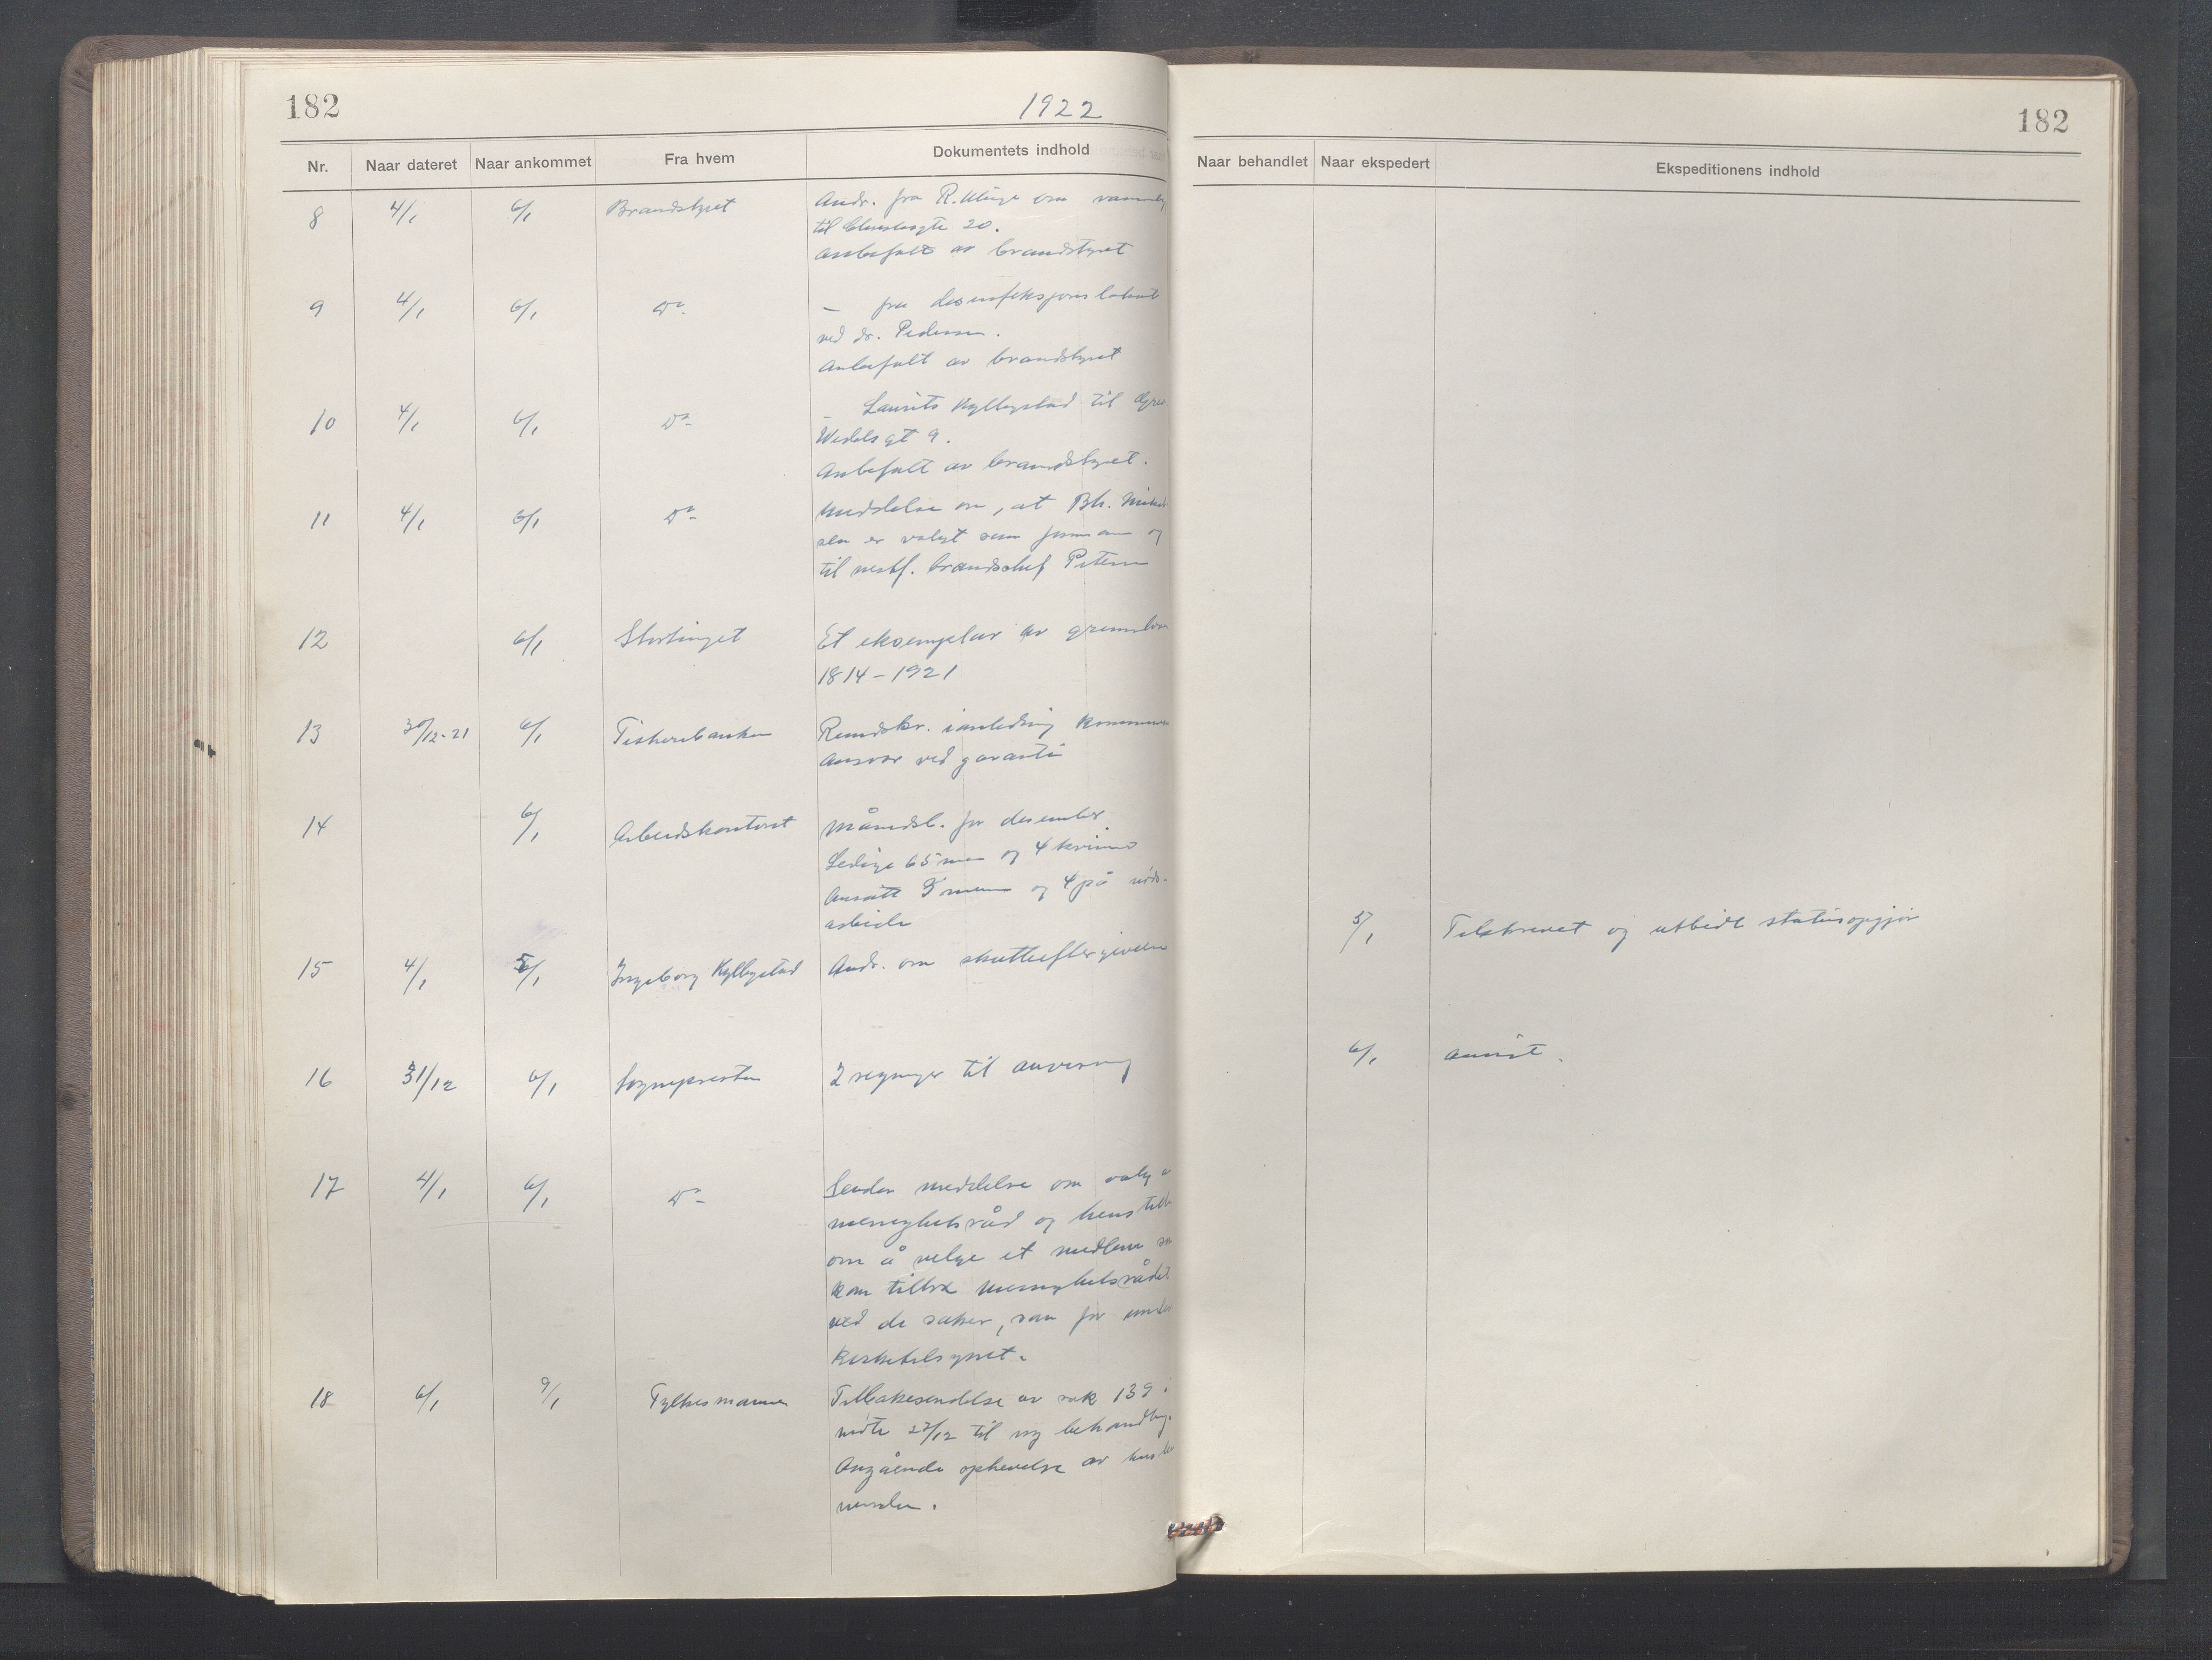 182
1922
Nr. Naar dateret Naar ankommet Fra hvem Dokumentets indhold
8 4/1 6/1 Brandstyret Andr. fra R. om
til 20.
Anbefalt av brandstyret
9 4/1 6/1 Do - fra desinfeksjons
ved dr. Pedersen.
Anbefalt av brandstyret
10 4/1 6/1 Do - Laurits Kyllingstad til
Wedels gt 9.
Anbefalt av brandstyret.
11 4/1 6/1 Do Meddelse om, at
sen er valgt som formann og
til nestf. brandschef Petersen
12 6/1 Stortinget Et eksemplar av grunnlov
1814-1921
13 30/12-21 6/1 Fiskeribanken Rundskr. i anledning kommune
ansvar ved garanti
14 6/1 Arbeidskontoret Månedsb. for desember
Ledige 65 men og 4 kvinner
Ansatt 5 menn og 4 på nøds-
arbeide
15 4/1 5/1 Ingeborg Kyllingstad Andr. om skatteeftergivelse
16 31/12 6/1 Sognepresten 2 regninger til anvisning
17 4/1 6/1 Do Sender meddelse om valg a
menighetsråd og henstill
om å velge et medlem so
kan tiltre menighetsrådet
ved de saker, som før under
kirketilsynet.
18 6/1 9/1 Fylkesmannen Tilbakesendelse av sak 139 i
møte 27/12 til ny behandling.
Angående ophevelse av husleie
nemden.
182
Naar behandlet Naar ekspedert Ekspeditionens indhold
5/1 Tilskrevet og utbedt statusopgjør
6/1 anvist.